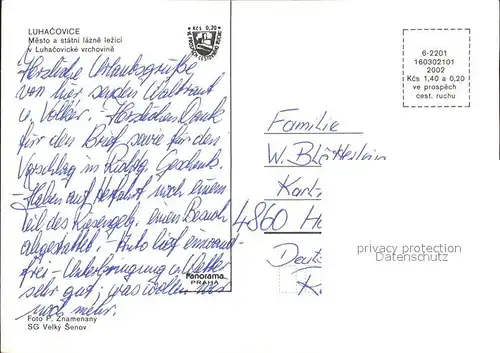 LUHAČOVICE
Město a státní lázně ležící
v Luhačovické vrchovině
Kčs 0,20
Herzliche Urlaubsgrüße
von hier senden Waltraut
u. Volker. - Herzlichen Dank
für den Brief sowie für den
Vorschlag in Richtg. Geschenk.
- Haben auf Herfahrt noch einem
Teil des Riesengeb. einen Besuch
abgestattet. - Auto lief einwand-
frei - Unterbringung u. Wetter
sehr gut; was wollen wir
noch mehr.
Foto P. Znamenaný
SG Velký Šenov
Panorama
PRAHA
6-2201
160302101
2002
Kčs 1,40 a 0,20
ve prospěch
cest. ruchu
Familie
W.
Karl-
4860 H
Deuts
privacy protection
Datenschutz